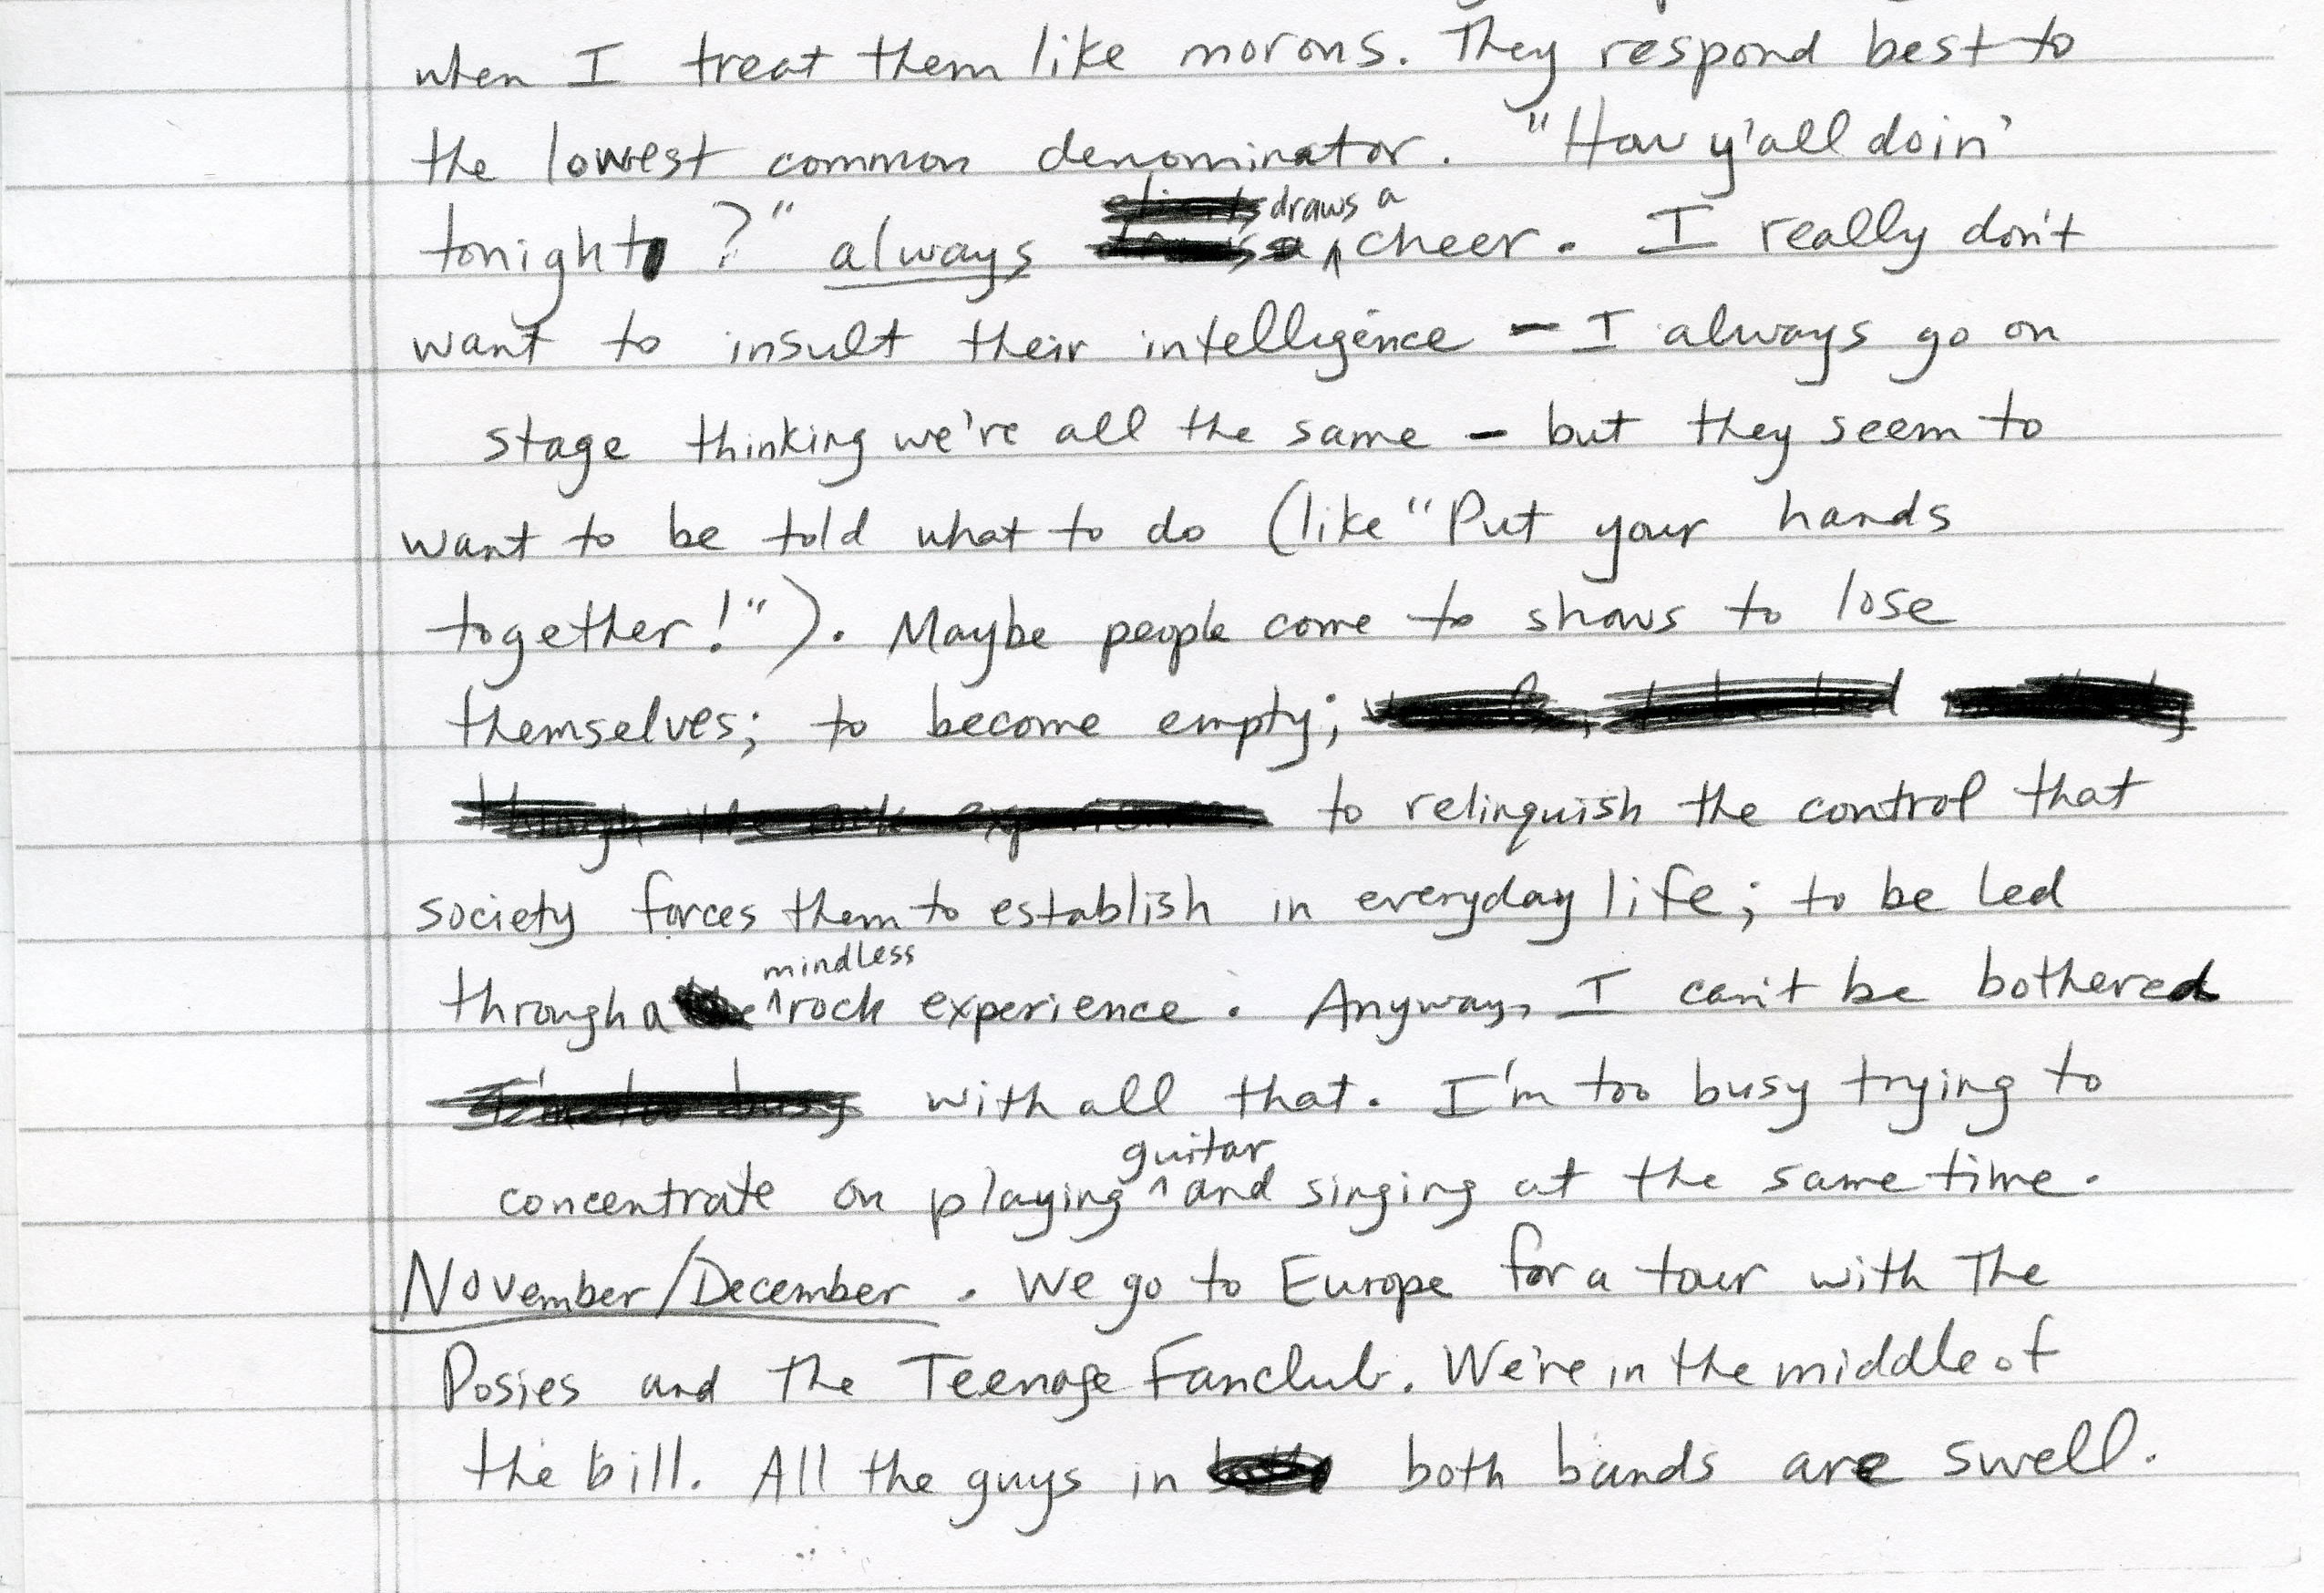 when I treat them like morons. They respond best to
the lowest common denominator. "How y'all doin'
tonight?" always draws a cheer. I really don't
want to insult their intelligence - I always go on
stage thinking we're all the same - but they seem to
want to be told what to do (like "Put your hands
together!"). Maybe people come to shows to lose
themselves; to become empty;
through the rock experience to relinquish the control that
society forces them to establish in everyday life; to be led
through a mindless rock experience. Anyway, I can't be bothered
I'm too busy with all that. I'm too busy trying to
concentrate on playing guitar and singing at the same time.
November/December. We go to Europe for a tour with The
Posies and the Teenage Fanclub. We're in the middle of
the bill. All the guys in both bands are swell.